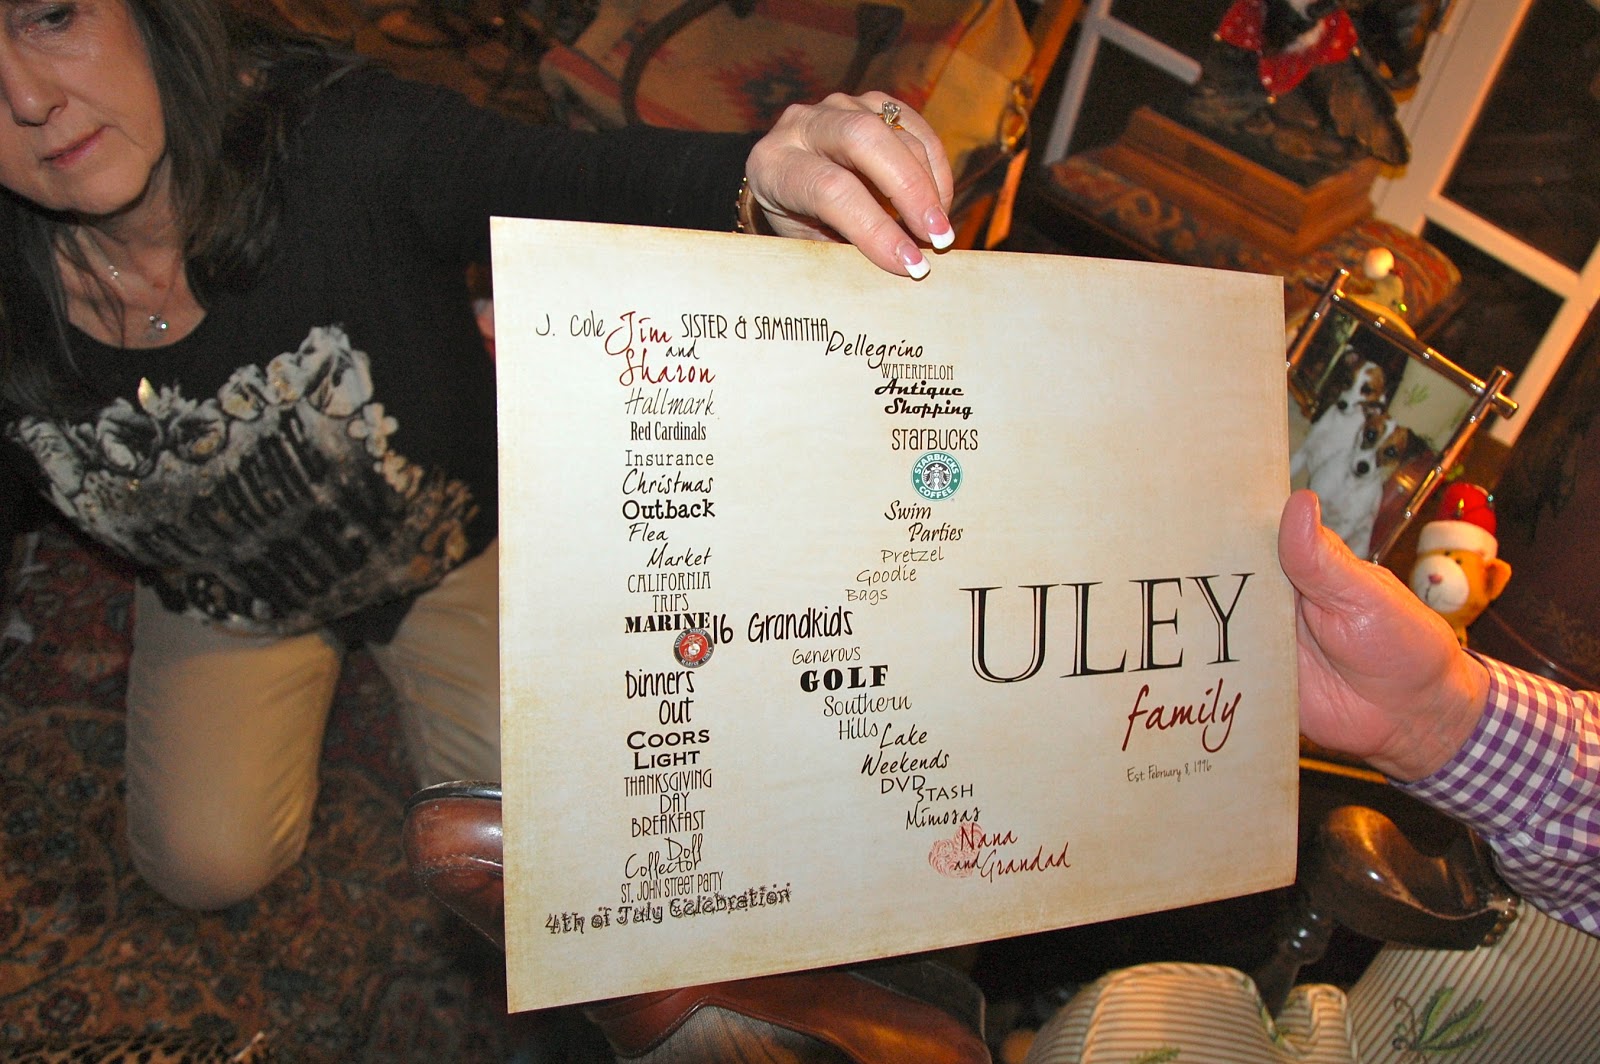 J. Cole Jim SISTER & SAMANTHA Pellegrino
and
Sharon
Hallmark
Red Cardinals
Insurance
Christmas
Outback
Flea
Market
CALIFORNIA
TRIPS
MARINE
Dinners
Out
COORS
LIGHT
THANKSGIVING
DAY
BREAKFAST
Doll
Collector
ST. JOHN STREET PARTY
4th of July Celebration
WATERMELON
Antique
Shopping
STARBUCKS
STARBUCKS
COFFEE
Swim
Parties
Pretzel
Goodie
Bags
16 Grandkids
Generous
GOLF
Southern
Hills
Lake
Weekends
DVD
STASH
Mimosas
Nana
and Grandad
ULEY
family
Est. February 8, 1996